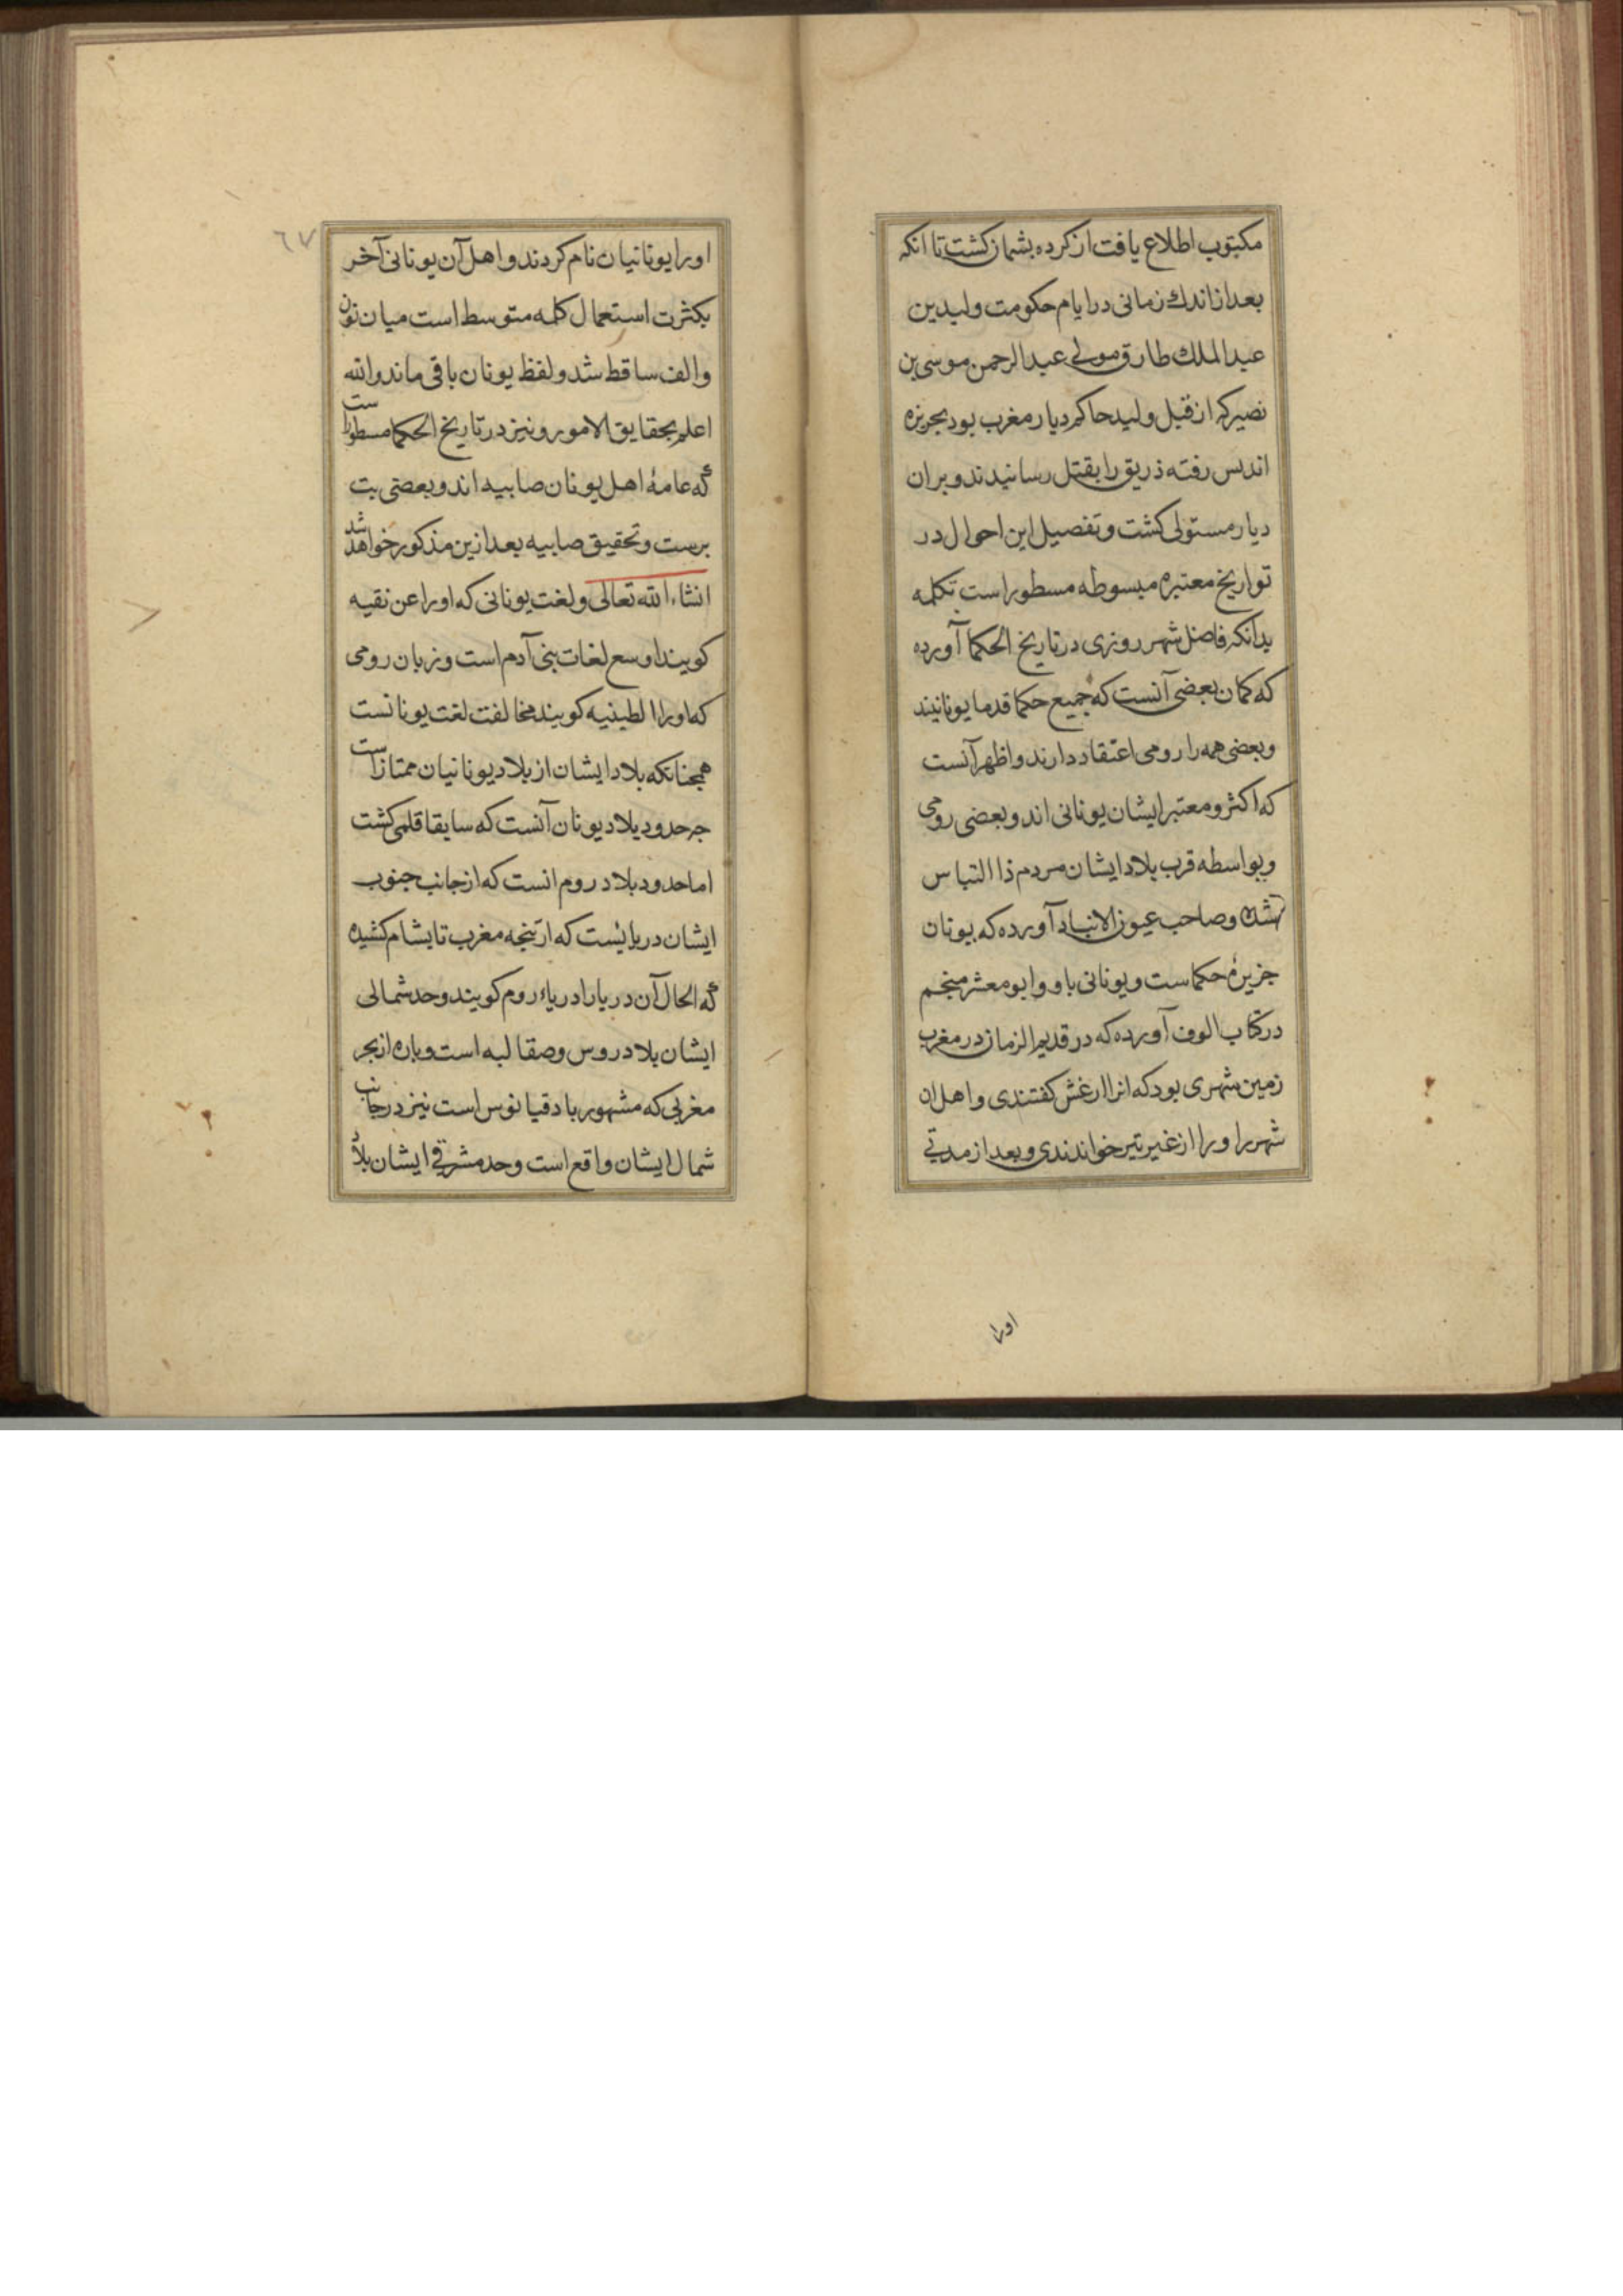 مکتوب اطلاع یافت از کرده پشیمان کشت تا انکه
بعد از اندك زمانی در ایام حکومت ولید بن
عبد الملك طارق مولی عبد الرحمن موسی بن
نصیر که از قبل ولید حاکم دیار مغرب بود بجزیره
اندلس رفته ذریق را بقتل رسانیدند و بران
دیار مستولی کشت و تفصیل این احوال در
تواریخ معتبره مبسوطه مسطور است تکمله
بدانکه فاضل شهر روزی در تاریخ الحکما آورده
که کمان بعضی آنست که جمیع حکما قدما یونانیند
و بعضی همه را رومی اعتقاد دارند و اظهر آنست
که اکثر و معتبر ایشان یونانی اند و بعضی رومی
و بواسطه قرب بلاد ایشان مردم ذا التباس
شده و صاحب عیون الانباد آورده که یونان
جزیرهٔ حکماست و یونانی باو و ابو معشر منجم
در کتاب الوف آورده که در قدیم الزمان در مغرب
زمین شهری بود که انرا ارغش کفتندی و اهل ان
شهر را و را از غیر تیر خواندندی و بعد از مدتی
اورا
٦٧
اورا یونانیان نام کردند و اهل آن یونانی آخر
بکثرت استعمال کلمه متوسط است میان نون
والف ساقط شد و لفظ یونان باقی ماند والله
اعلم بحقایق الامور و نیز در تاریخ الحکما مسطور است
که عامهٔ اهل یونان صابیه اند و بعضی بت
پرست و تحقیق صابیه بعد ازین مذکور خواهد شد
انشاء الله تعالی و لغت یونانی که اورا عن نقیه
کویند اوسع لغات بنی آدم است و زبان رومی
که اورا الطینیه کویند مخالفت لغت یونانست
همچنانکه بلاد ایشان از بلاد یونانیان ممتاز است
جر حدود بلاد یونان آنست که سابقا قلمی کشت
اما حدود بلاد روم انست که از جانب جنوب
ایشان دریایست که از تنجه مغرب تا بشام کشیده
که الحال آن دریا را دریاء روم کویند و حد شمالی
ایشان بلاد روس و صقالبه است و پاره از بحر
مغربی که مشهور باد قیانوس است نیز در جانب
شمال ایشان واقع است و حد مشرقی ایشان بلاد